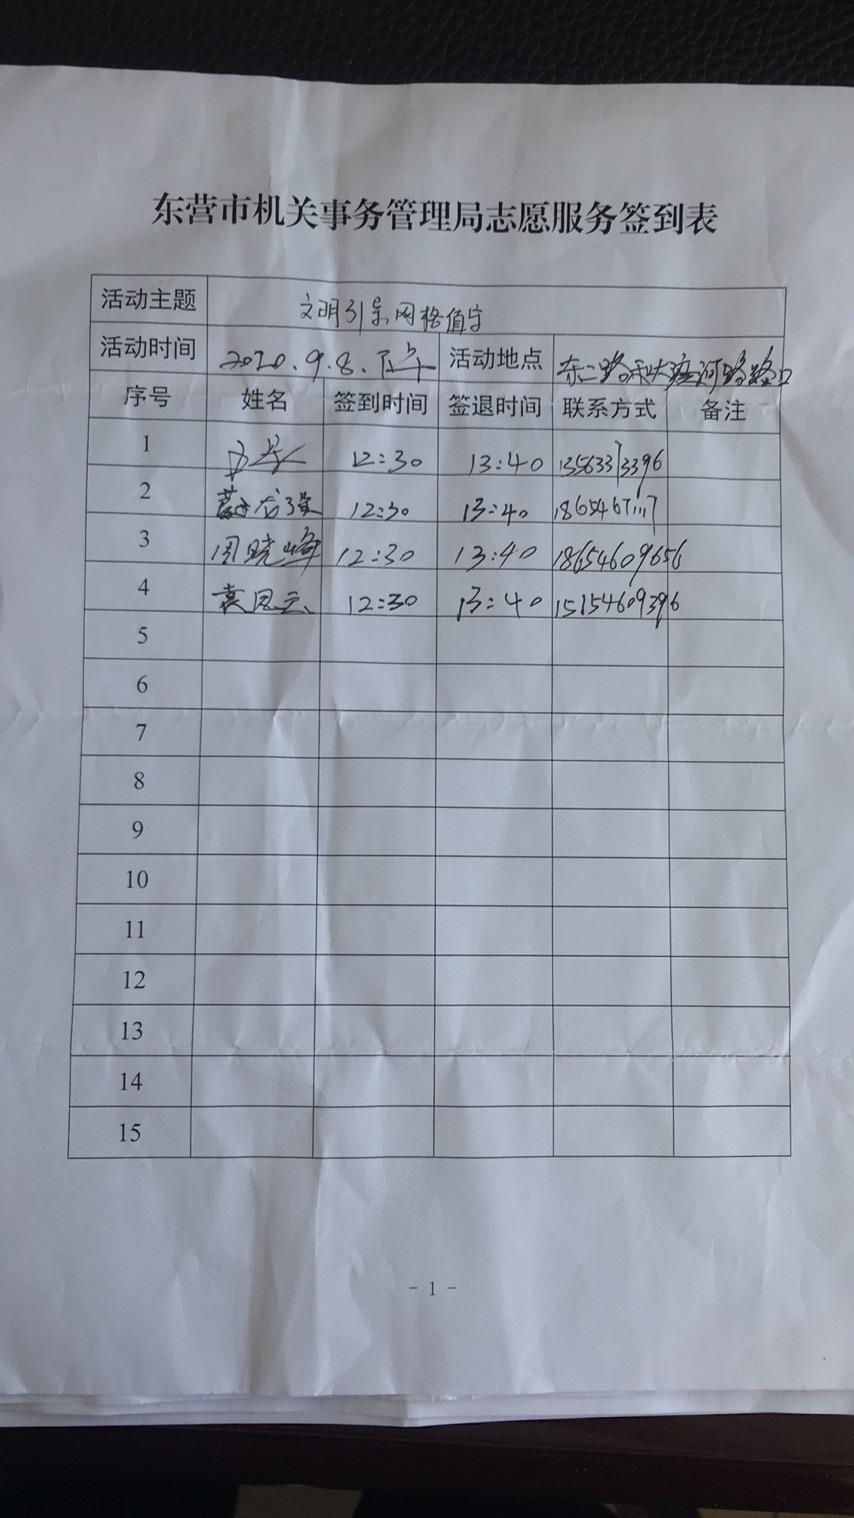 东营市机关事务管理局志愿服务签到表
活动主题 文明引导、网格值守
活动时间 2020.9.8.下午 活动地点 东二路和 河路路口
序号 姓名 签到时间 签退时间 联系方式 备注
1 12:30 13:40 13563373396
2 12:30 13:40
3 周晓峰 12:30 13:40 18654609656
4 袁凤云 12:30 13:40 15154609396
5
6
7
8
9
10
11
12
13
14
15
- 1 -